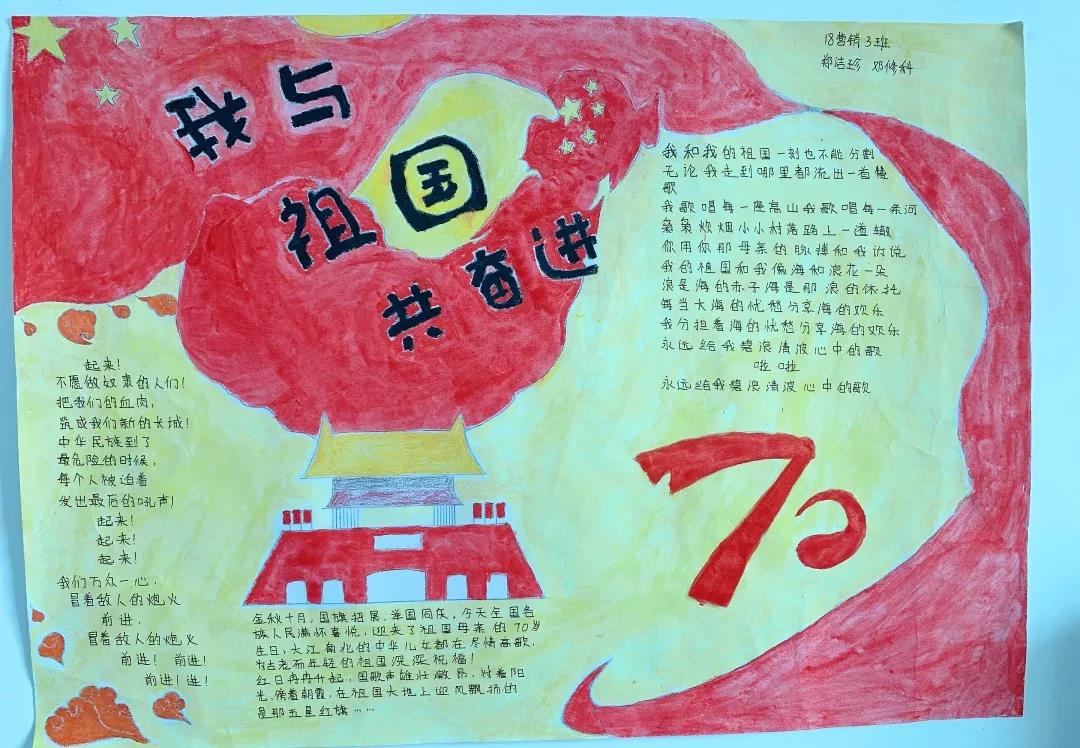 我与
祖国
共奋进
18营销3班
郑洁珍 邓修科
我和我的祖国一刻也不能分割
无论我走到哪里都流出一首赞
歌
我歌唱每一座高山我歌唱每一条河
袅袅炊烟小小村落路上一道辙
你用你那母亲的脉搏和我诉说
我的祖国和我像海和浪花一朵
浪是海的赤子海是那浪的依托
每当大海的忧愁分享海的欢乐
我分担着海的忧愁分享海的欢乐
永远给我碧浪清波心中的歌
啦啦
永远给我碧浪清波心中的歌
70
起来!
不愿做奴隶的人们!
把我们的血肉,
筑成我们新的长城!
中华民族到了
最危险的时候,
每个人被迫着
发出最后的吼声!
起来!
起来!
起来!
我们万众一心,
冒着敌人的炮火
前进,
冒着敌人的炮火
前进! 前进!
前进!进!
金秋十月,国旗招展,举国同庆,今天全国各
族人民满怀喜悦,迎来了祖国母亲的70岁
生日,大江南北的中华儿女都在尽情高歌,
为古老而年轻的祖国深深祝福!
红日冉冉升起,国歌声雄壮激昂,对着阳
光,傍着朝霞,在祖国大地上迎风飘扬的
是那五星红旗……